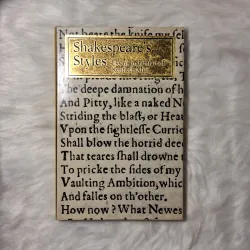 Not beare the knife my sel
Shakespeare's
Styles
The deepe damnation of h
And Pitty, like a naked N
Striding the blast, or Hea
Vpon the sightlesse Currio
Shall blow the horrid deed
That teares shall drowne
To pricke the sides of my
Vaulting Ambition, which
And falles on th'other.
How now? What Newes